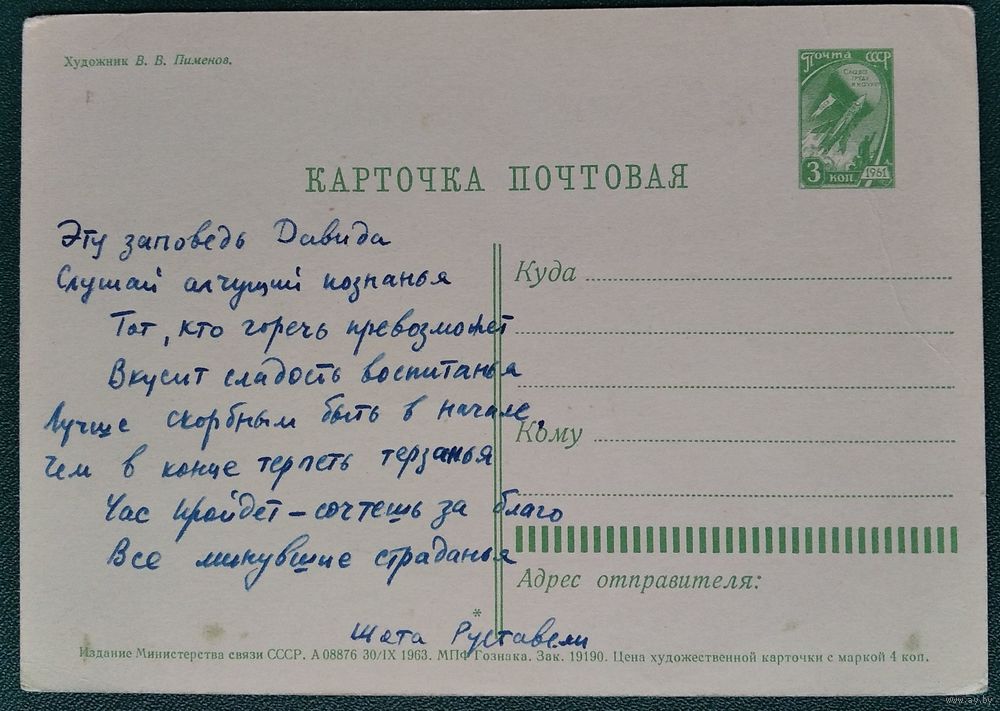 Художник В. В. Пименов.
Почта СССР
Слава труду и науке
3 коп 1961
КАРТОЧКА ПОЧТОВАЯ
Эту заповедь Давида
Слушай алчущий познанья
Тот, кто горечь превозможет
Вкусит сладость воспитанья
Лучше скорбным быть в начале,
Чем в конце терпеть терзанья
Час пройдет – сочтешь за благо
Все минувшие страданья
Шота Руставели
Куда
Кому
Адрес отправителя:
*
Издание Министерства связи СССР. А 08876 30/IX 1963. МПФ Гознака. Зак. 19190. Цена художественной карточки с маркой 4 коп.
www.ay.by